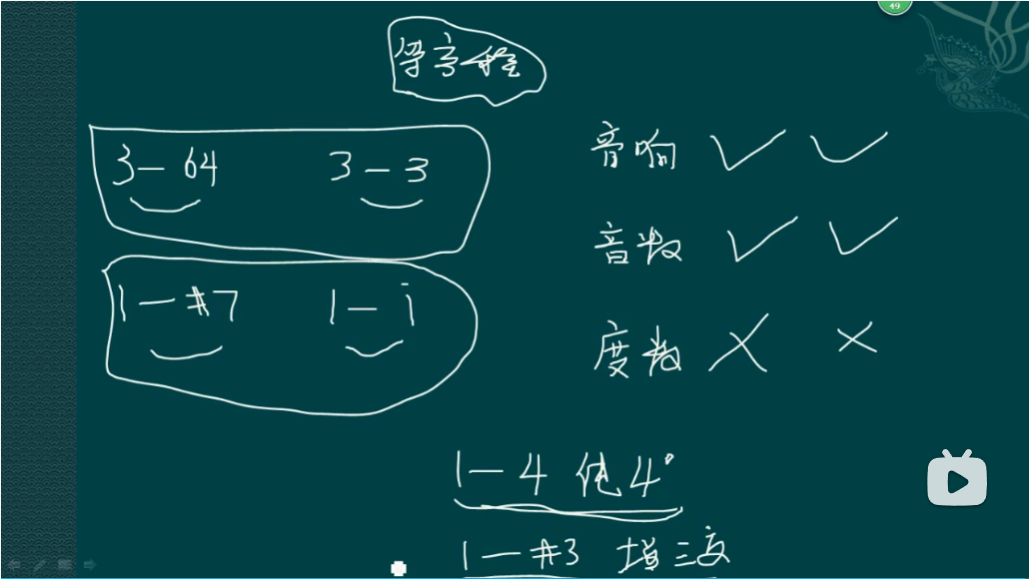 49
等音程
3 — b4 3 — 3
1 — #7 1 — i
音响 ✓ ✓
音数 ✓ ✓
度数 ✗ ✗
1 — 4 纯4°
1 — #3 增三度